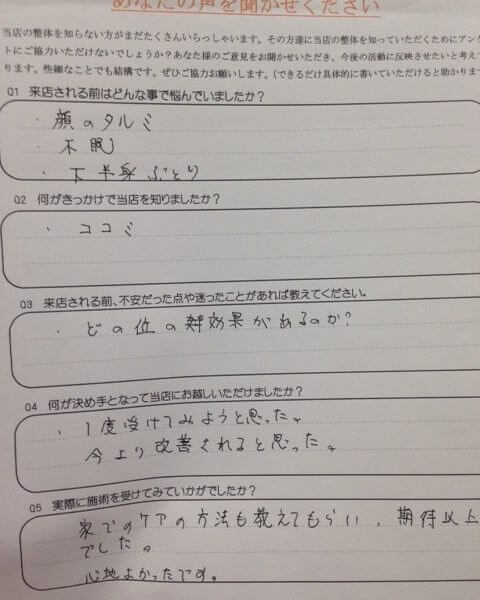 あなたの声を聞かせください
当店の整体を知らない方がまだたくさんいらっしゃいます。その方達に当店の整体を知っていただくためにアンケ
トにご協力いただけないでしょうか？あなた様のご意見をお聞かせいただき、今後の活動に反映させたいと考えて
ります。些細なことでも結構です。ぜひご協力お願いします。（できるだけ具体的に書いていただけると助かります
Q1 来店される前はどんな事で悩んでいましたか？
・顔のタルミ
・不眠
・下半身ぶとり
Q2 何がきっかけで当店を知りましたか？
・ココミ
Q3 来店される前、不安だった点や迷ったことがあれば教えてください。
・どの位の効果があるのか？
Q4 何が決め手となって当店にお越しいただけましたか？
・1度受けてみようと思った。
今より改善されると思った。
Q5 実際に施術を受けてみていかがでしたか？
家でのケアの方法も教えてもらい、期待以上
でした。
心地よかったです。